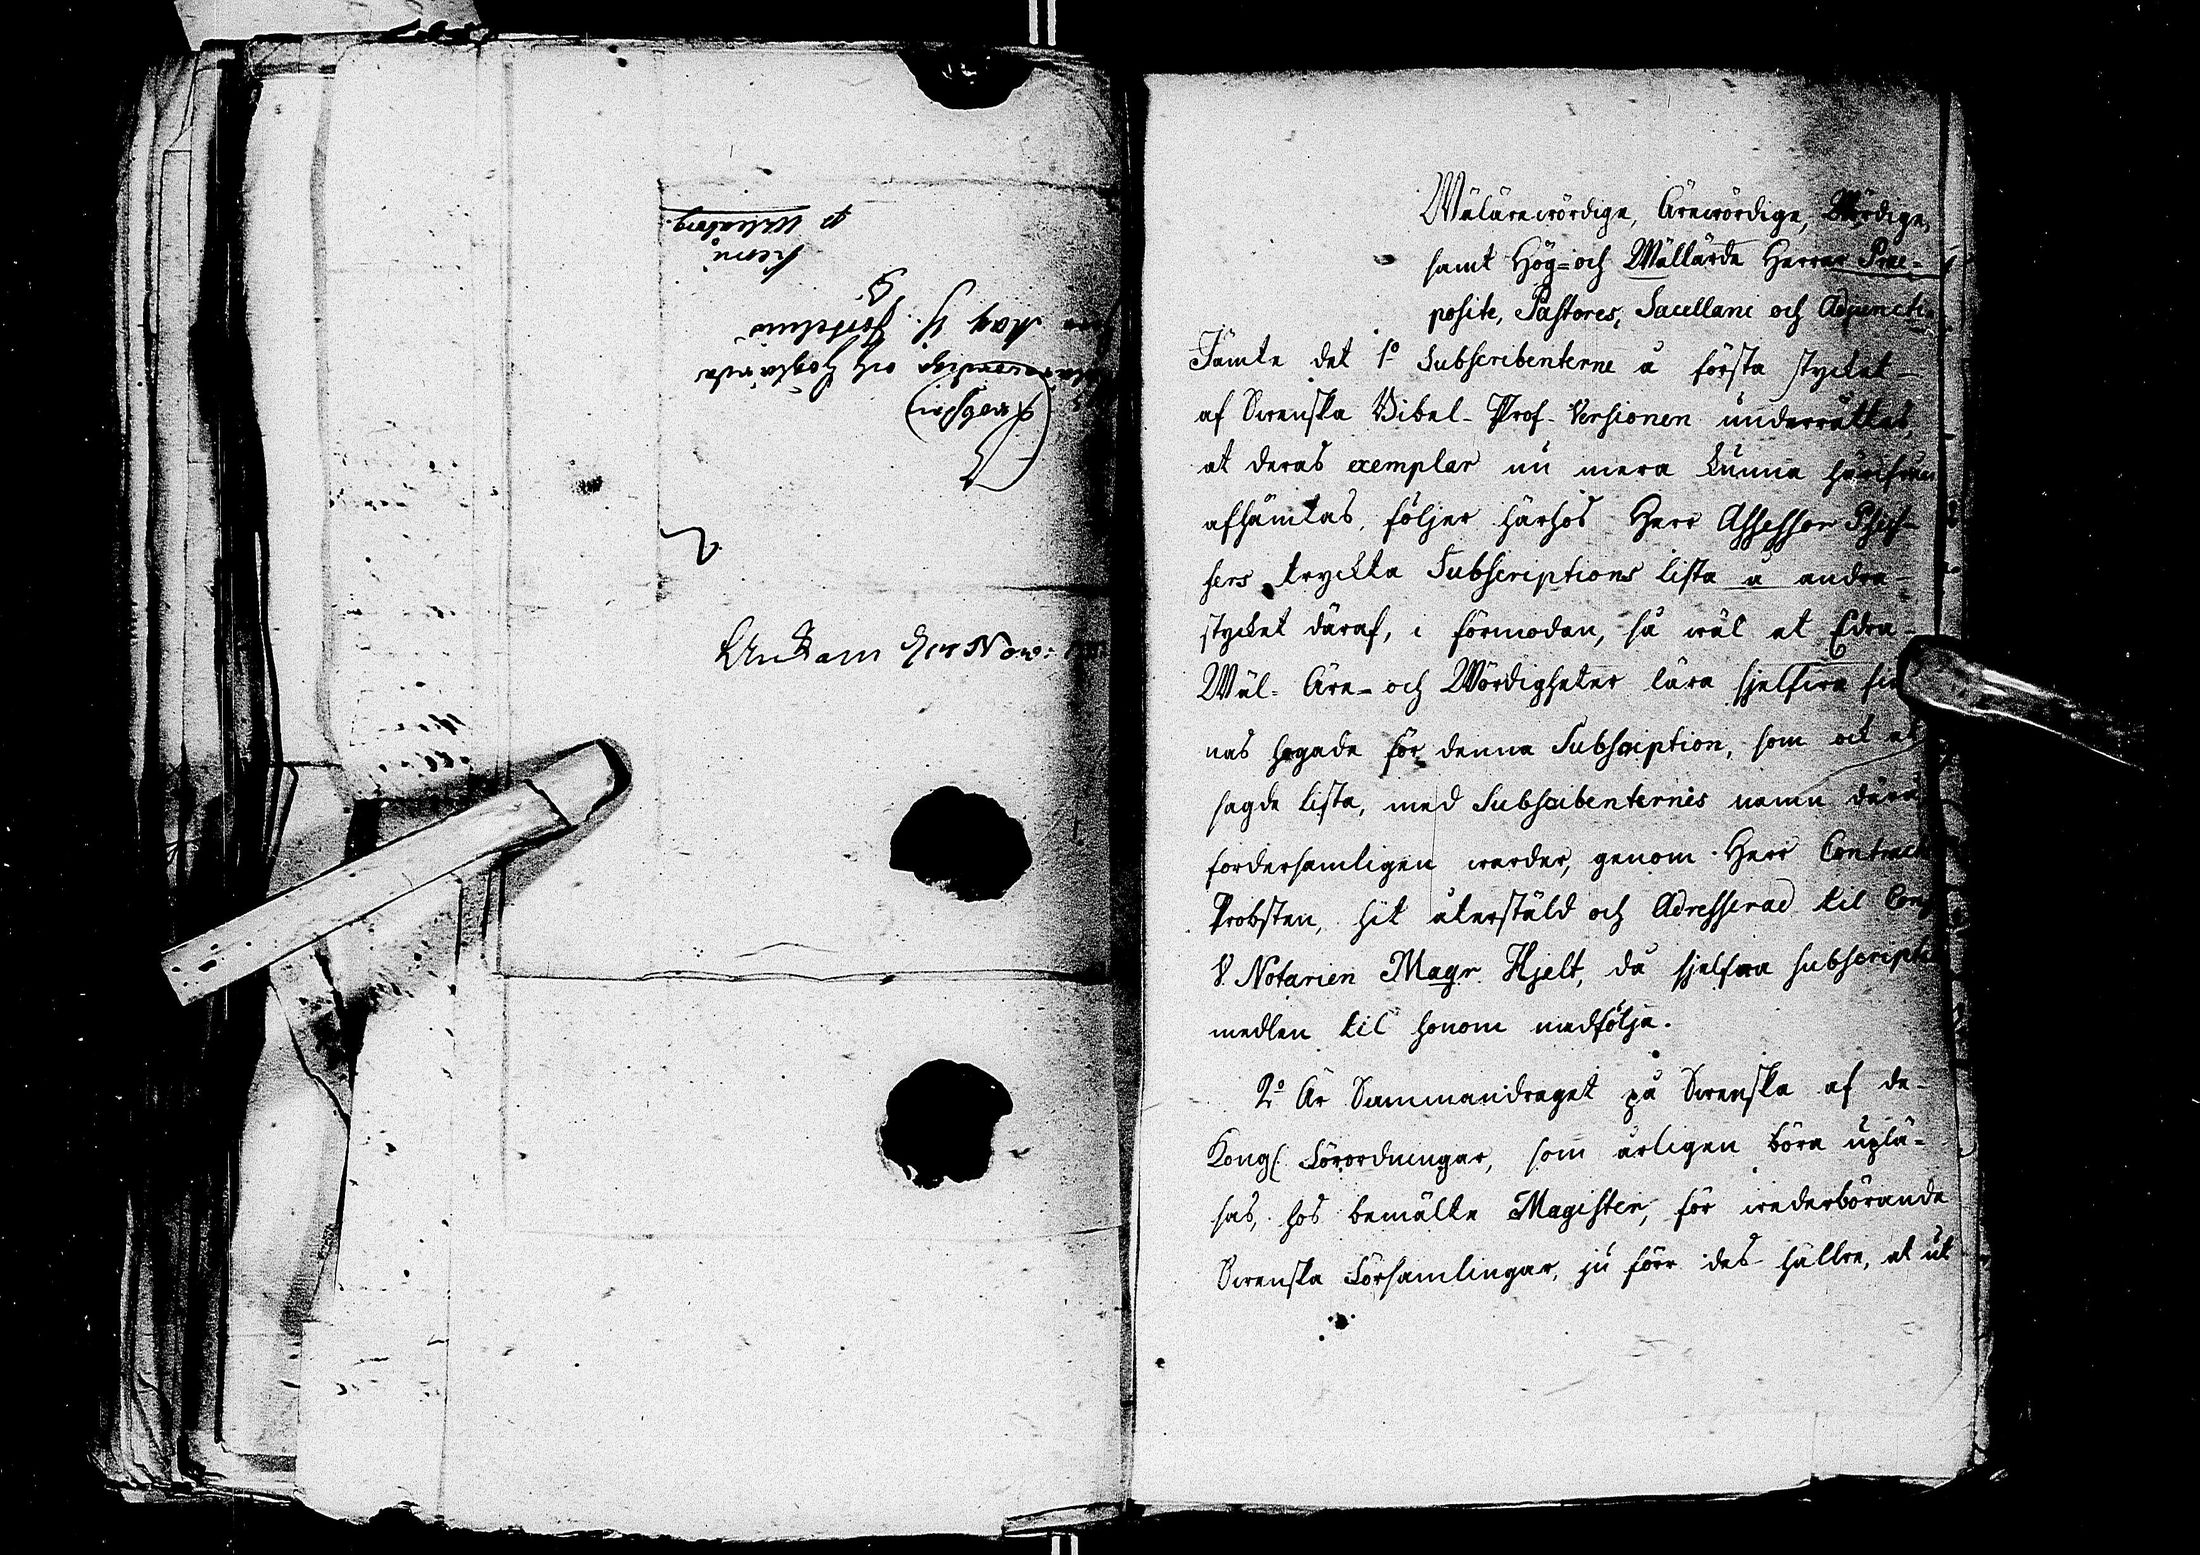 p Uhleåborg.
Kemi
Herr Mag J. Forteliuo
Wälärewördige och Höglärde
Probsten
Ankom d. Nov:
Wälärewördige, Ärewördige, Wördige,
samt Hög= och Wällärde Herrar Præ=
posite, Pastores, Sacellani och Adjuncti.
Jämte det 1º Subscribenterne å första stycket
af Swenska Bibel-Prof-Versionen underrättas,
at deras exemplar nu mera kunna härifrån
afhämtas, följer härhos Herr Assessor Pfeif-
fers tryckta Subscriptions lista å andra
stycket däraf, i förmodan, så wäl at Edra
Wäl- Äre- och Wördigheter lära sjelfwe fin
nas hogade för denna Subscription, som ock at
sagde lista, med Subscribenternes namn därå
fordersamligen warder, genom Herr Contract
Probsten, hit återstäld och Adresserad til Cons
V. Notarien Magr. Hjelt, då sjelfwa subscripti
medlen til honom medfölja.
2º Är Sammandraget på Swenska af de
Kongl. Förordningar, som årligen böra uplä=
sas, hos bemälte Magister, för wederbörande
Swenska Församlingar, ju förr des hällre, at ut